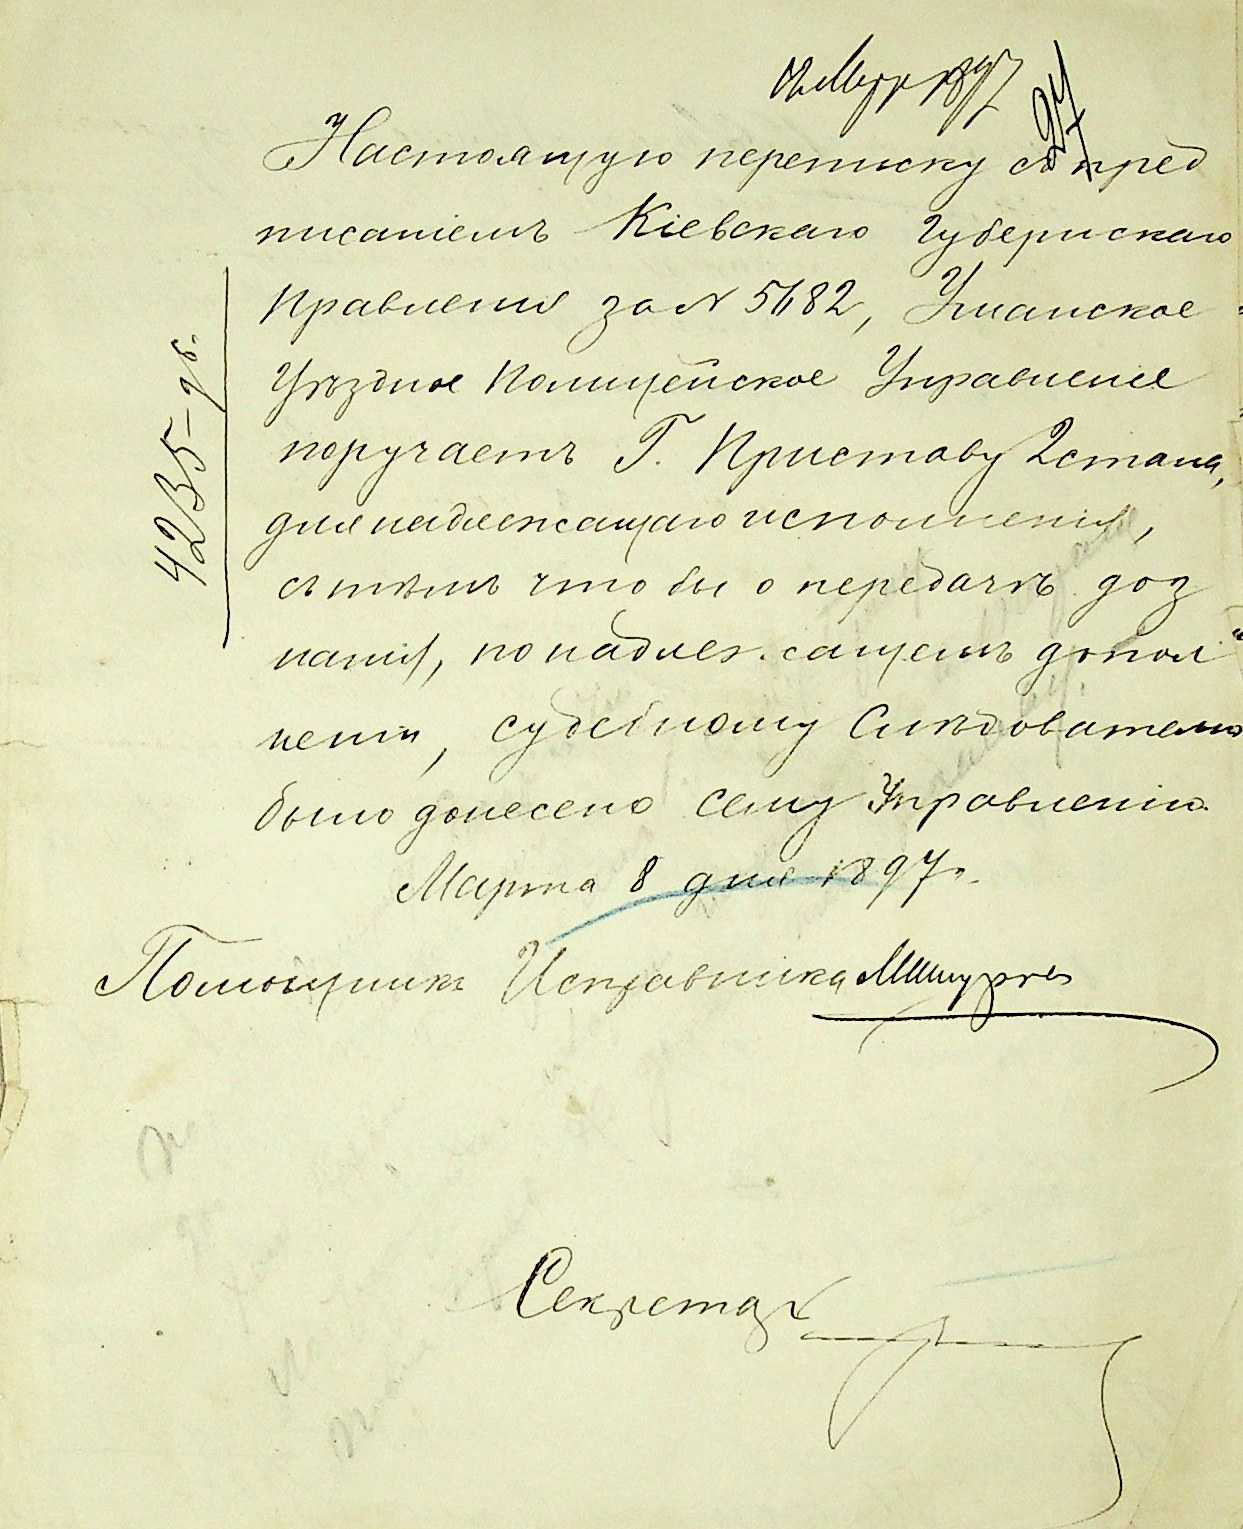 Марта 1897
274
Настоящую переписку съ пред
писаніемъ Кіевскаго Губернскаго
Правленія за № 5682, Уманское
Уѣздное Полицейское Управленіе
поручаетъ Г. Приставу 2 стана,
для надлежащаго исполненія,
съ тѣмъ что бы о передачѣ доз
нанія, по надлежащемъ допол
неніи, судебному Слѣдователю
было донесено сему Управленію.
Марта 8 дня 1897 г.
Помощникъ Исправника
Секретарь
4235